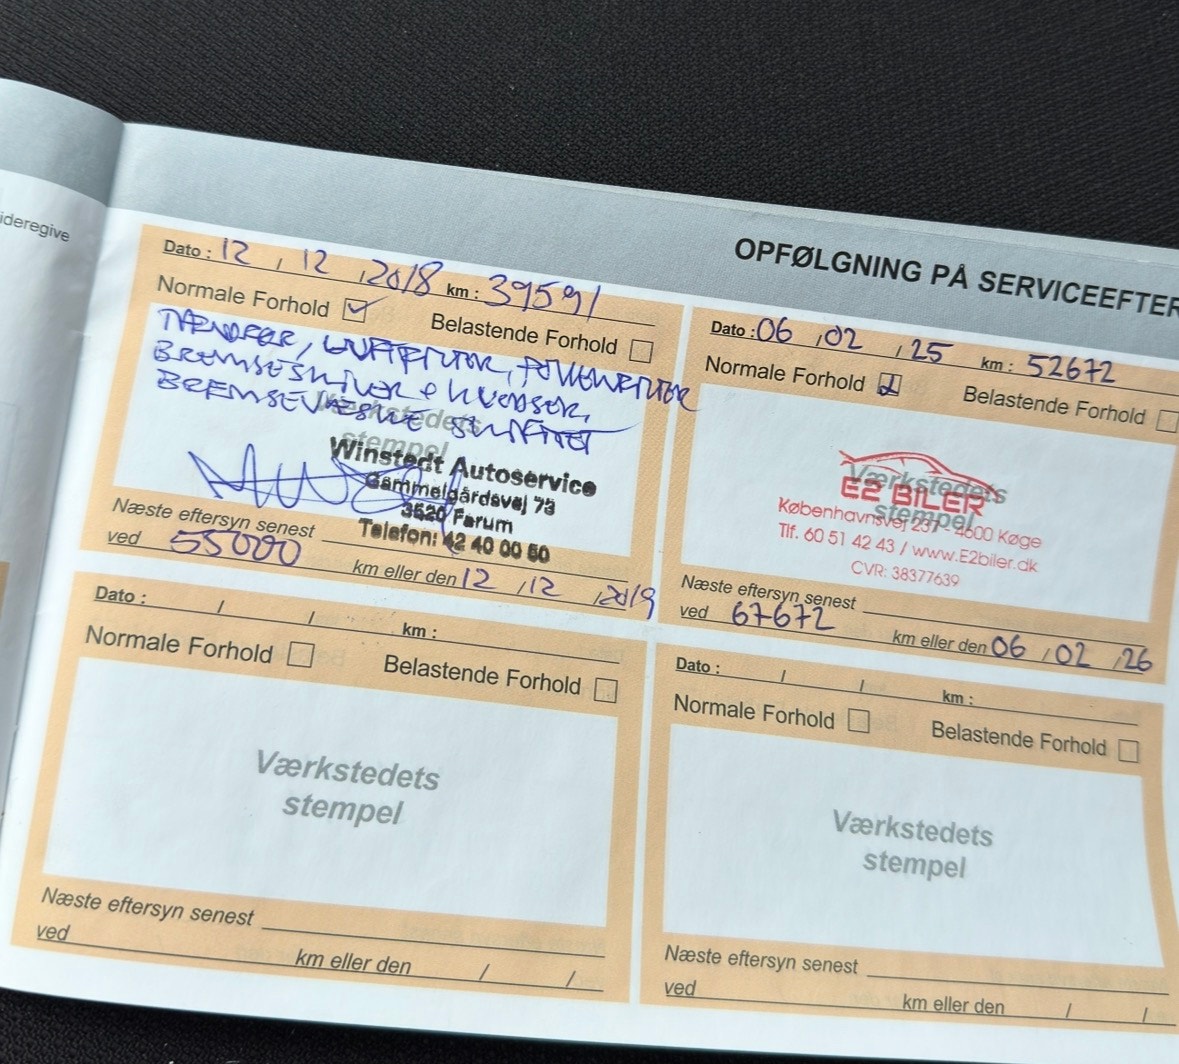 ideregive
OPFØLGNING PÅ SERVICEEFTER
Dato : 12 , 12 , 2018 km : 39591
Normale Forhold Belastende Forhold
TÆNDRØR, LUFTFILTER, POLLENFILTER
BREMSESKIVER + KLODSER,
BREMSEVÆSKE SKIFTET
Værkstedets
stempel
Winstedt Autoservice
Gammelgårdsvej 73
3520 Farum
Telefon: 42 40 00 50
Næste eftersyn senest
ved 55000 km eller den 12 , 12 , 2019
Dato : 06 , 02 , 25 km : 52672
Normale Forhold Belastende Forhold
Værkstedets
stempel
E2 BILER
Københavnsvej 237 - 4600 Køge
Tlf. 60 51 42 43 / www.E2biler.dk
CVR: 38377639
Næste eftersyn senest
ved 67672 km eller den 06 , 02 , 26
Dato : / / km :
Normale Forhold Belastende Forhold
Værkstedets
stempel
Næste eftersyn senest
ved km eller den / /
Dato : / / km :
Normale Forhold Belastende Forhold
Værkstedets
stempel
Næste eftersyn senest
ved km eller den / /